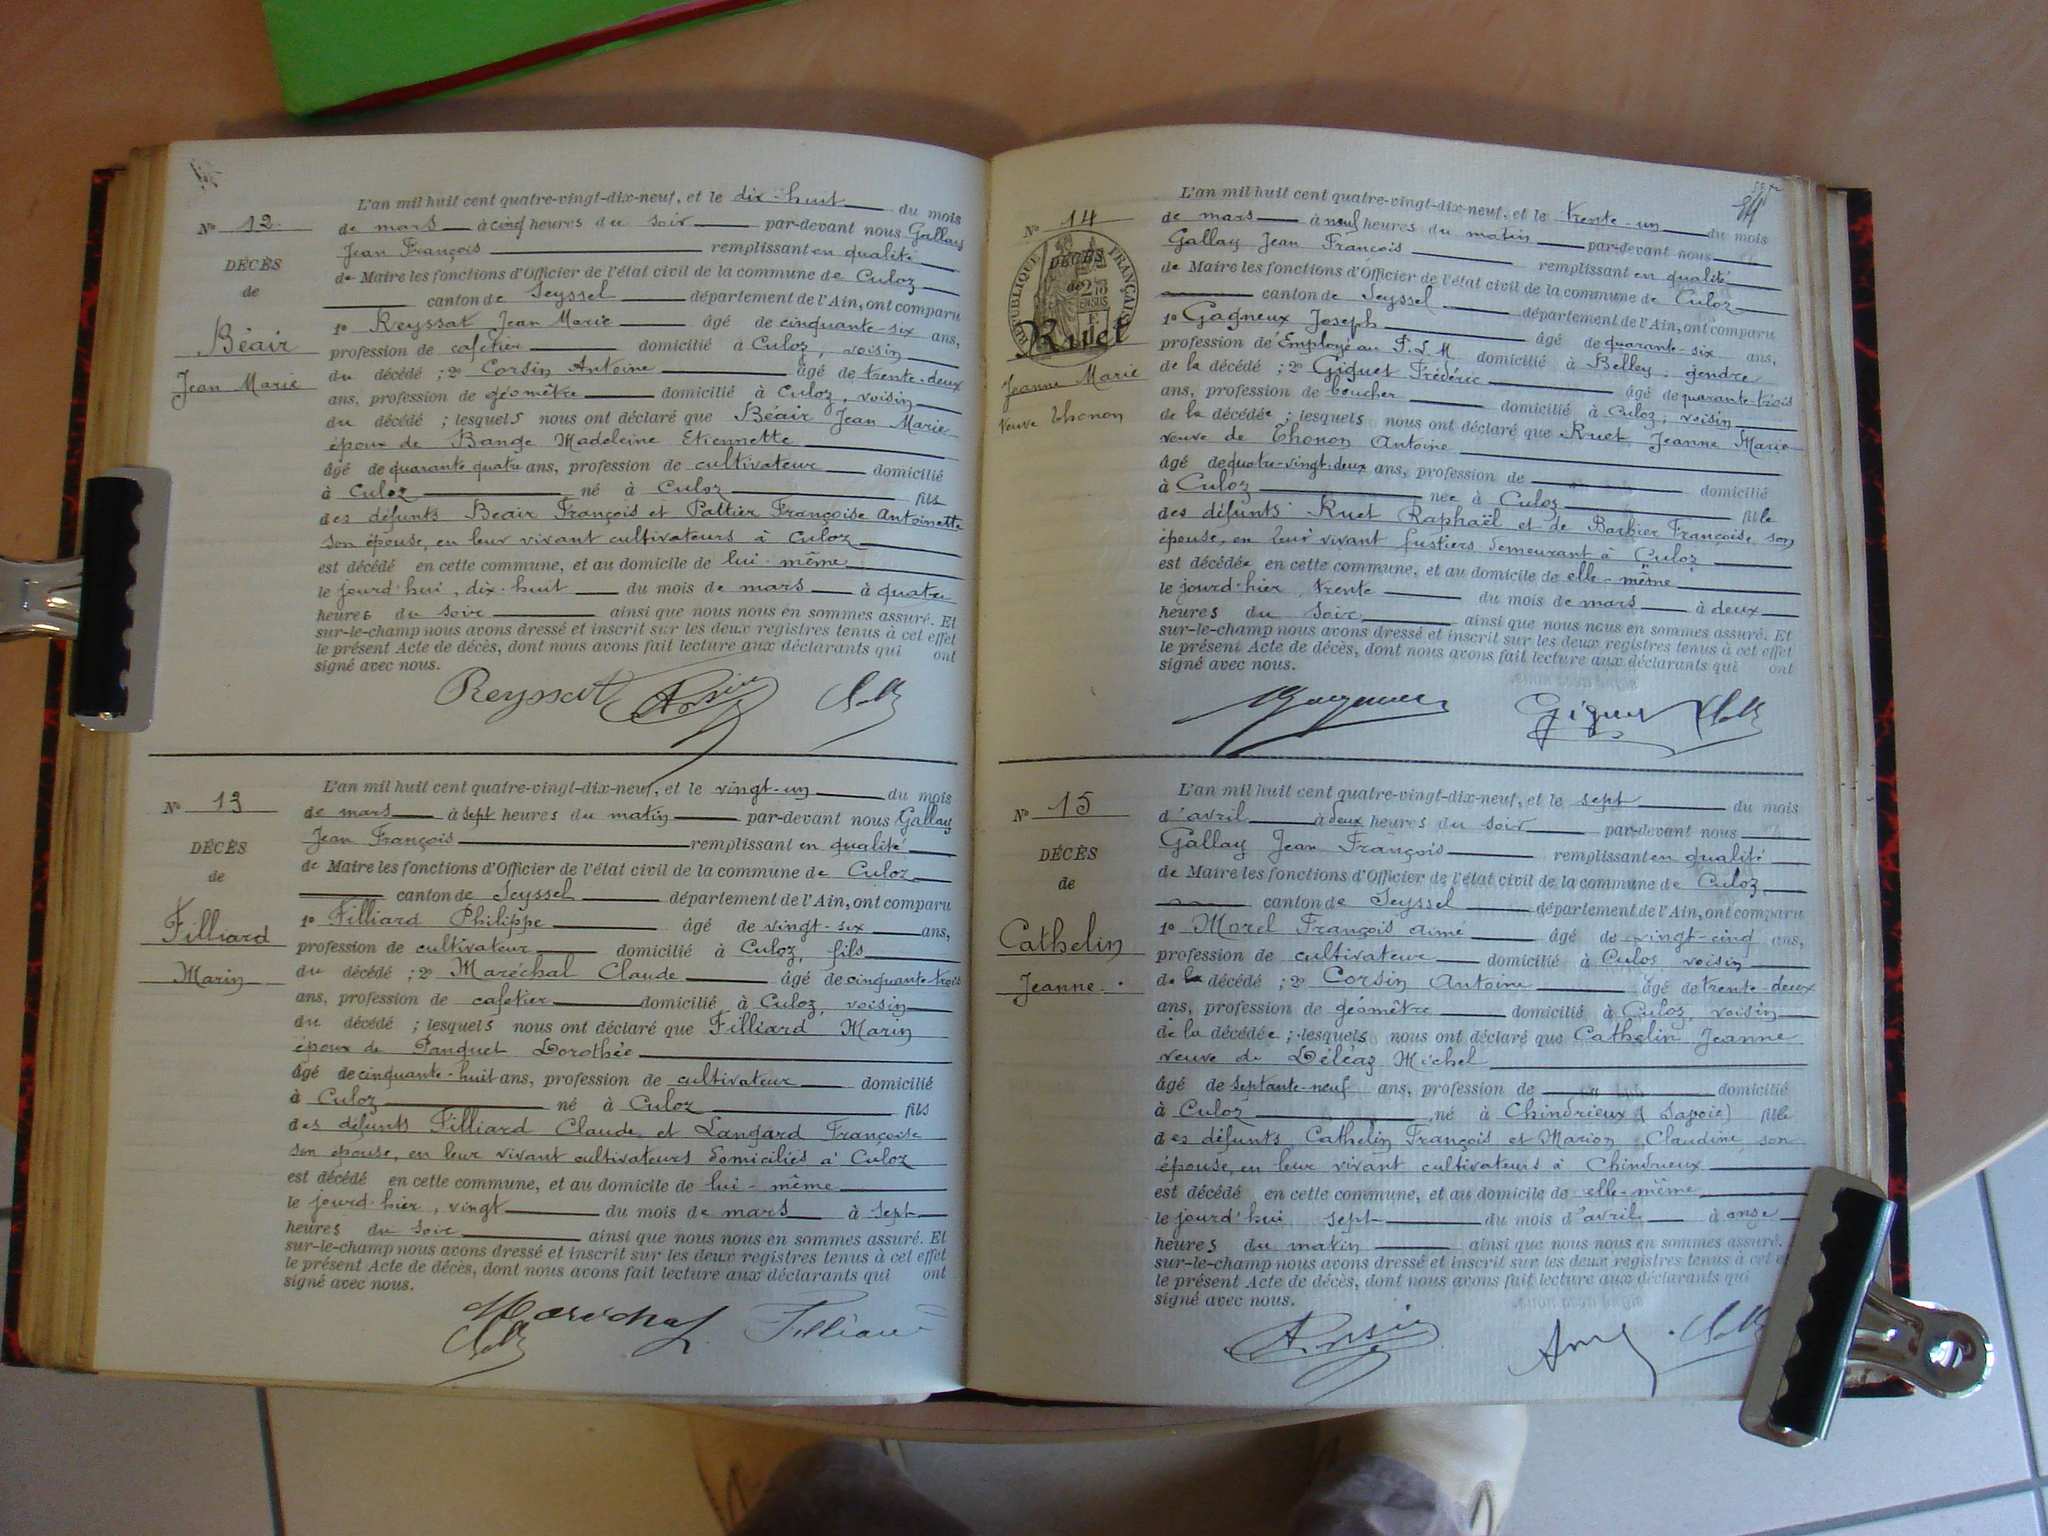 L'an mil huit cent quatre-vingt-dix-neuf, et le dix-huit du mois
N° 12
de mars à cinq heures du soir par-devant nous Gallay
Jean François remplissant en qualité
DÉCÈS
de Maire les fonctions d'Officier de l'état civil de la commune de Culoz
de
canton de Seyssel département de l'Ain, ont comparu
1° Reyssat Jean Marie âgé de cinquante-six ans,
Béair
profession de cafetier domicilié à Culoz, voisin
Jean Marie
du décédé ; 2° Corsin Antoine âgé de trente-deux
ans, profession de géomètre domicilié à Culoz, voisin
du décédé ; lesquels nous ont déclaré que Béair Jean Marie
époux de Bange Madeleine Etiennette
âgé de quarante quatre ans, profession de cultivateur domicilié
à Culoz né à Culoz fils
des défunts Béair François et Pattier Françoise Antoinette
son épouse, en leur vivant cultivateurs à Culoz
est décédé en cette commune, et au domicile de lui-même
le jourd'hui, dix-huit du mois de mars à quatre
heures du soir ainsi que nous nous en sommes assuré. Et
sur-le-champ nous avons dressé et inscrit sur les deux registres tenus à cet effet
le présent Acte de décès, dont nous avons fait lecture aux déclarants qui ont
signé avec nous.
Reyssat
L'an mil huit cent quatre-vingt-dix-neuf, et le vingt-un du mois
N° 13
de mars à sept heures du matin par-devant nous Gallay
Jean François remplissant en qualité
DÉCÈS
de Maire les fonctions d'Officier de l'état civil de la commune de Culoz
de
canton de Seyssel département de l'Ain, ont comparu
1° Filliard Philippe âgé de vingt-six ans,
Filliard
profession de cultivateur domicilié à Culoz, fils
Marin
du décédé ; 2° Maréchal Claude âgé de cinquante-trois
ans, profession de cafetier domicilié à Culoz, voisin
du décédé ; lesquels nous ont déclaré que Filliard Marin
époux de Panquet Dorothée
âgé de cinquante-huit ans, profession de cultivateur domicilié
à Culoz né à Culoz fils
des défunts Filliard Claude et Langard Françoise
son épouse, en leur vivant cultivateurs domiciliés à Culoz
est décédé en cette commune, et au domicile de lui-même
le jourd'hier, vingt du mois de mars à sept
heures du soir ainsi que nous nous en sommes assuré. Et
sur-le-champ nous avons dressé et inscrit sur les deux registres tenus à cet effet
le présent Acte de décès, dont nous avons fait lecture aux déclarants qui ont
signé avec nous.
Maréchal Filliard
L'an mil huit cent quatre-vingt-dix-neuf, et le trente-un du mois
N° 14
de mars à neuf heures du matin par-devant nous
Gallay Jean François remplissant en qualité
RÉPUBLIQUE FRANÇAISE
DÉCÈS
de Maire les fonctions d'Officier de l'état civil de la commune de Culoz
de
canton de Seyssel département de l'Ain, ont comparu
1° Gagneux Joseph âgé de quarante-six ans,
Ruet
profession de Employé au P.L.M. domicilié à Belley, gendre
Jeanne Marie
de la décédé ; 2° Giguet Frédéric âgé de quarante-trois
Veuve Thonon
ans, profession de boucher domicilié à Culoz, voisin
de la décédée ; lesquels nous ont déclaré que Ruet Jeanne Marie
veuve de Thonon Antoine
âgé de quatre-vingt-deux ans, profession de domicilié
à Culoz née à Culoz fille
des défunts Ruet Raphaël et de Barbier Françoise, son
épouse, en leur vivant fustiers demeurant à Culoz
est décédée en cette commune, et au domicile de elle-même
le jourd'hier, trente du mois de mars à deux
heures du soir ainsi que nous nous en sommes assuré. Et
sur-le-champ nous avons dressé et inscrit sur les deux registres tenus à cet effet
le présent Acte de décès, dont nous avons fait lecture aux déclarants qui ont
signé avec nous.
Gagneux Giguet
L'an mil huit cent quatre-vingt-dix-neuf, et le sept du mois
N° 15
d'avril à deux heures du soir par-devant nous
Gallay Jean François remplissant en qualité
DÉCÈS
de Maire les fonctions d'Officier de l'état civil de la commune de Culoz
de
canton de Seyssel département de l'Ain, ont comparu
1° Morel François aimé âgé de vingt-cinq ans,
Cathelin
profession de cultivateur domicilié à Culoz voisin
Jeanne
de la décédé ; 2° Corsin Antoine âgé de trente-deux
ans, profession de géomètre domicilié à Culoz, voisin
de la décédée ; lesquels nous ont déclaré que Cathelin Jeanne
veuve de Déléaz Michel
âgé de septante-neuf ans, profession de domicilié
à Culoz né à Chindrieux (Savoie) fille
des défunts Cathelin François et Marion Claudine, son
épouse, en leur vivant cultivateurs à Chindrieux
est décédé en cette commune, et au domicile de elle-même
le jourd'hui sept du mois d'avril à onze
heures du matin ainsi que nous nous en sommes assuré.
sur-le-champ nous avons dressé et inscrit sur les deux registres tenus à cet
le présent Acte de décès, dont nous avons fait lecture aux déclarants qui
signé avec nous.